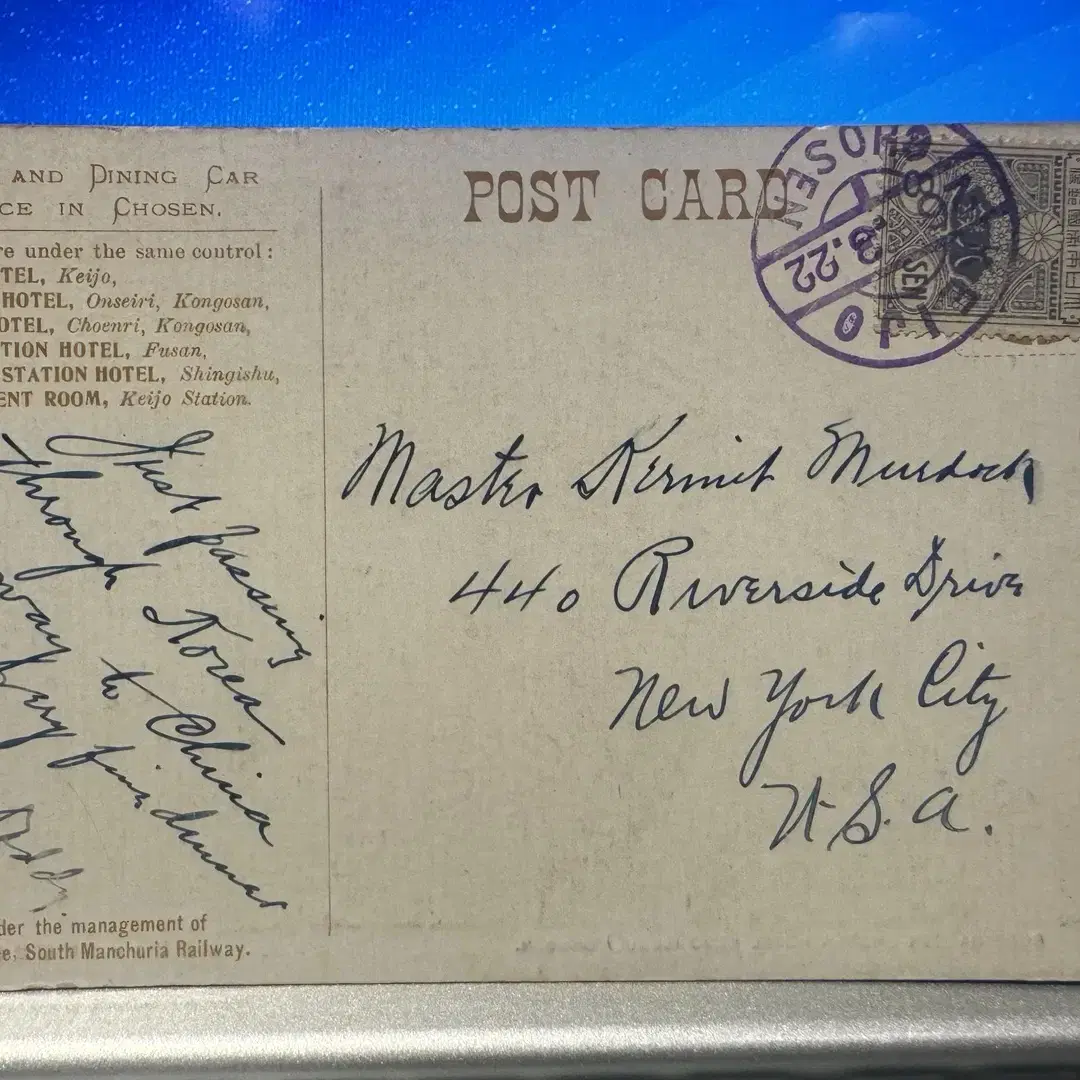 AND DINING CAR
CE IN CHOSEN.
re under the same control:
TEL, Keijo,
HOTEL, Onseiri, Kongosan,
OTEL, Choenri, Kongosan,
TION HOTEL, Fusan,
STATION HOTEL, Shingishu,
ENT ROOM, Keijo Station.
Just passing
through Korea
way to China
Very fine dinner
der the management of
e, South Manchuria Railway.
POST CARD
CHOSEN
3.22
SEN
Master Kermit Murdock
440 Riverside Drive
New York City
U.S.A.